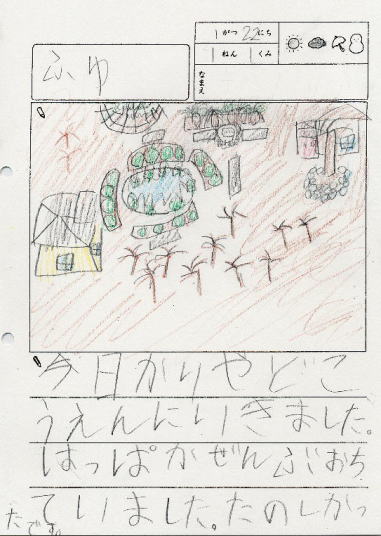 1がつ22にち
1ねん くみ
なまえ
ふゆ
今日かりやどこ
うえんにいきました。
はっぱがぜんぶおち
ていました。たのしかっ
たです。